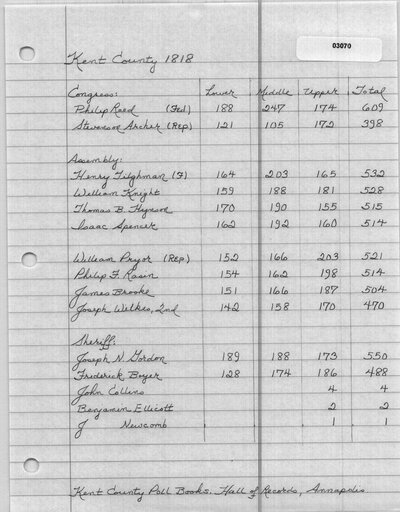 03070
Kent County 1818
Congress: Lower Middle Upper Total
Philip Reed (Fed) 188 247 174 609
Stevenson Archer (Rep) 121 105 172 398
Assembly:
Henry Tilghman (F) 164 203 165 532
William Knight 159 188 181 528
Thomas B. Hynson 170 190 155 515
Isaac Spencer 162 192 160 514
William Pryor (Rep) 152 166 203 521
Philip F. Rasin 154 162 198 514
James Brooke 151 166 187 504
Joseph Welkes, 2nd 142 158 170 470
Sheriff:
Joseph N. Gordon 189 188 173 550
Frederick Boyer 128 174 186 488
John Collins 4 4
Benjamin Ellicott 2 2
J Newcomb 1 1
Kent County Poll Books. Hall of Records, Annapolis